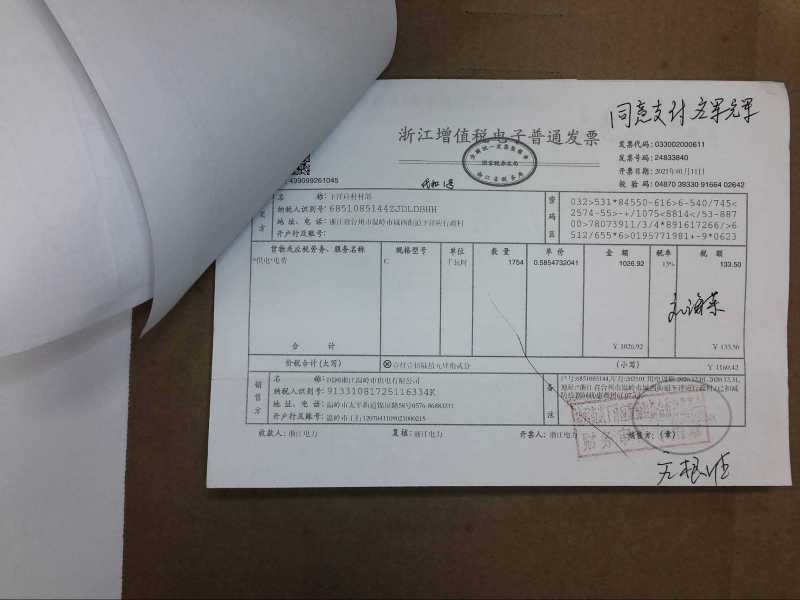 同意支付
浙江增值税电子普通发票
发票代码: 033002000611
发票号码: 24833840
开票日期: 2021年01月11日
校 验 码: 04870 39330 91664 02642
499099261045
全国统一发票监制章
国家税务总局
浙江省税务局
名 称: 下洋应村村部
纳税人识别号: 68510851442JDLDBHH
地 址、电 话: 浙江省台州市温岭市城西街道下洋应行政村
开户行及账号:
方
密
码
区
032>531*84550-616>6-540/745<
2574-55>-+/1075<8814</53-887
00>78073911/3/4*891617266/>6
512/655*6>0195771981+-9*0623
货物或应税劳务、服务名称 规格型号 单位 数 量 单 价 金 额 税率 税 额
*供电*电费 C 千瓦时 1754 0.5854732041 1026.92 13% 133.50
合 计 ¥ 1026.92 ¥ 133.50
价税合计(大写) 壹仟壹佰陆拾元肆角贰分 (小写) ¥ 1160.42
销
售
方
名 称: 国网浙江温岭市供电有限公司
纳税人识别号: 91331081725116334K
地 址、电 话: 温岭市太平街道锦屏路58号0576-86883231
开户行及账号: 温岭市工行1207041109021000215
备
注
收款人: 浙江电力 复核: 浙江电力 开票人: 浙江电力 销售方: (章)